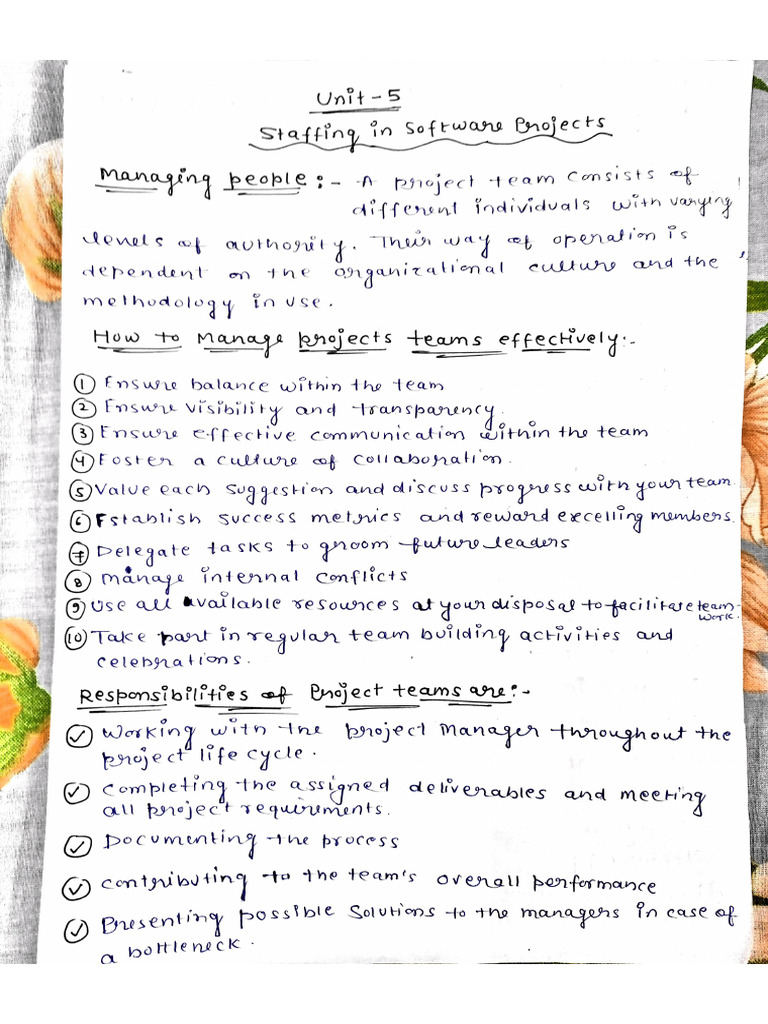 Unit-5
Staffing in Software Projects
Managing people:- A project team consists of
different individuals with varying
levels of authority. Their way of operation is
dependent on the organizational culture and the
methodology in use.
How to Manage projects teams effectively:-
① Ensure balance within the team
② Ensure visibility and transparency.
③ Ensure effective communication within the team
④ Foster a culture of collaboration.
⑤ Value each suggestion and discuss progress with your team.
⑥ Establish success metrics and reward excelling members.
⑦ Delegate tasks to groom future leaders
⑧ Manage internal conflicts
⑨ Use all available resources at your disposal to facilitate team-
work.
⑩ Take part in regular team building activities and
celebrations.
Responsibilities of Project teams are:-
✓ Working with the project Manager throughout the
project life cycle.
✓ Completing the assigned deliverables and meeting
all project requirements.
✓ Documenting the process
✓ Contributing to the team's overall performance
✓ Presenting possible solutions to the managers in case of
a bottleneck.